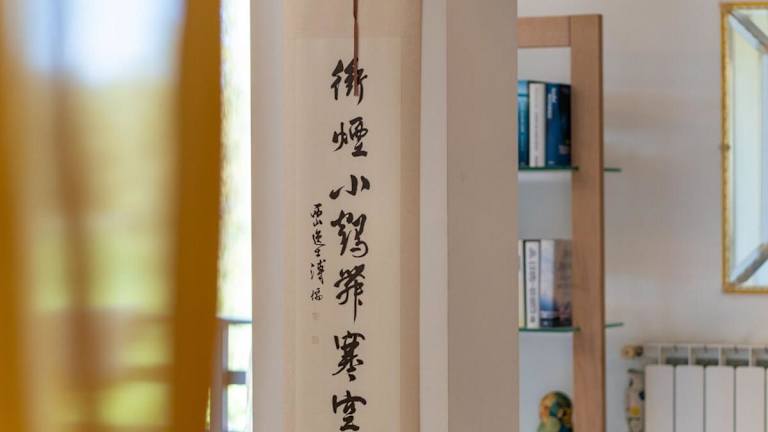 衝煙小鶴舞寒空
西山逸士溥儒